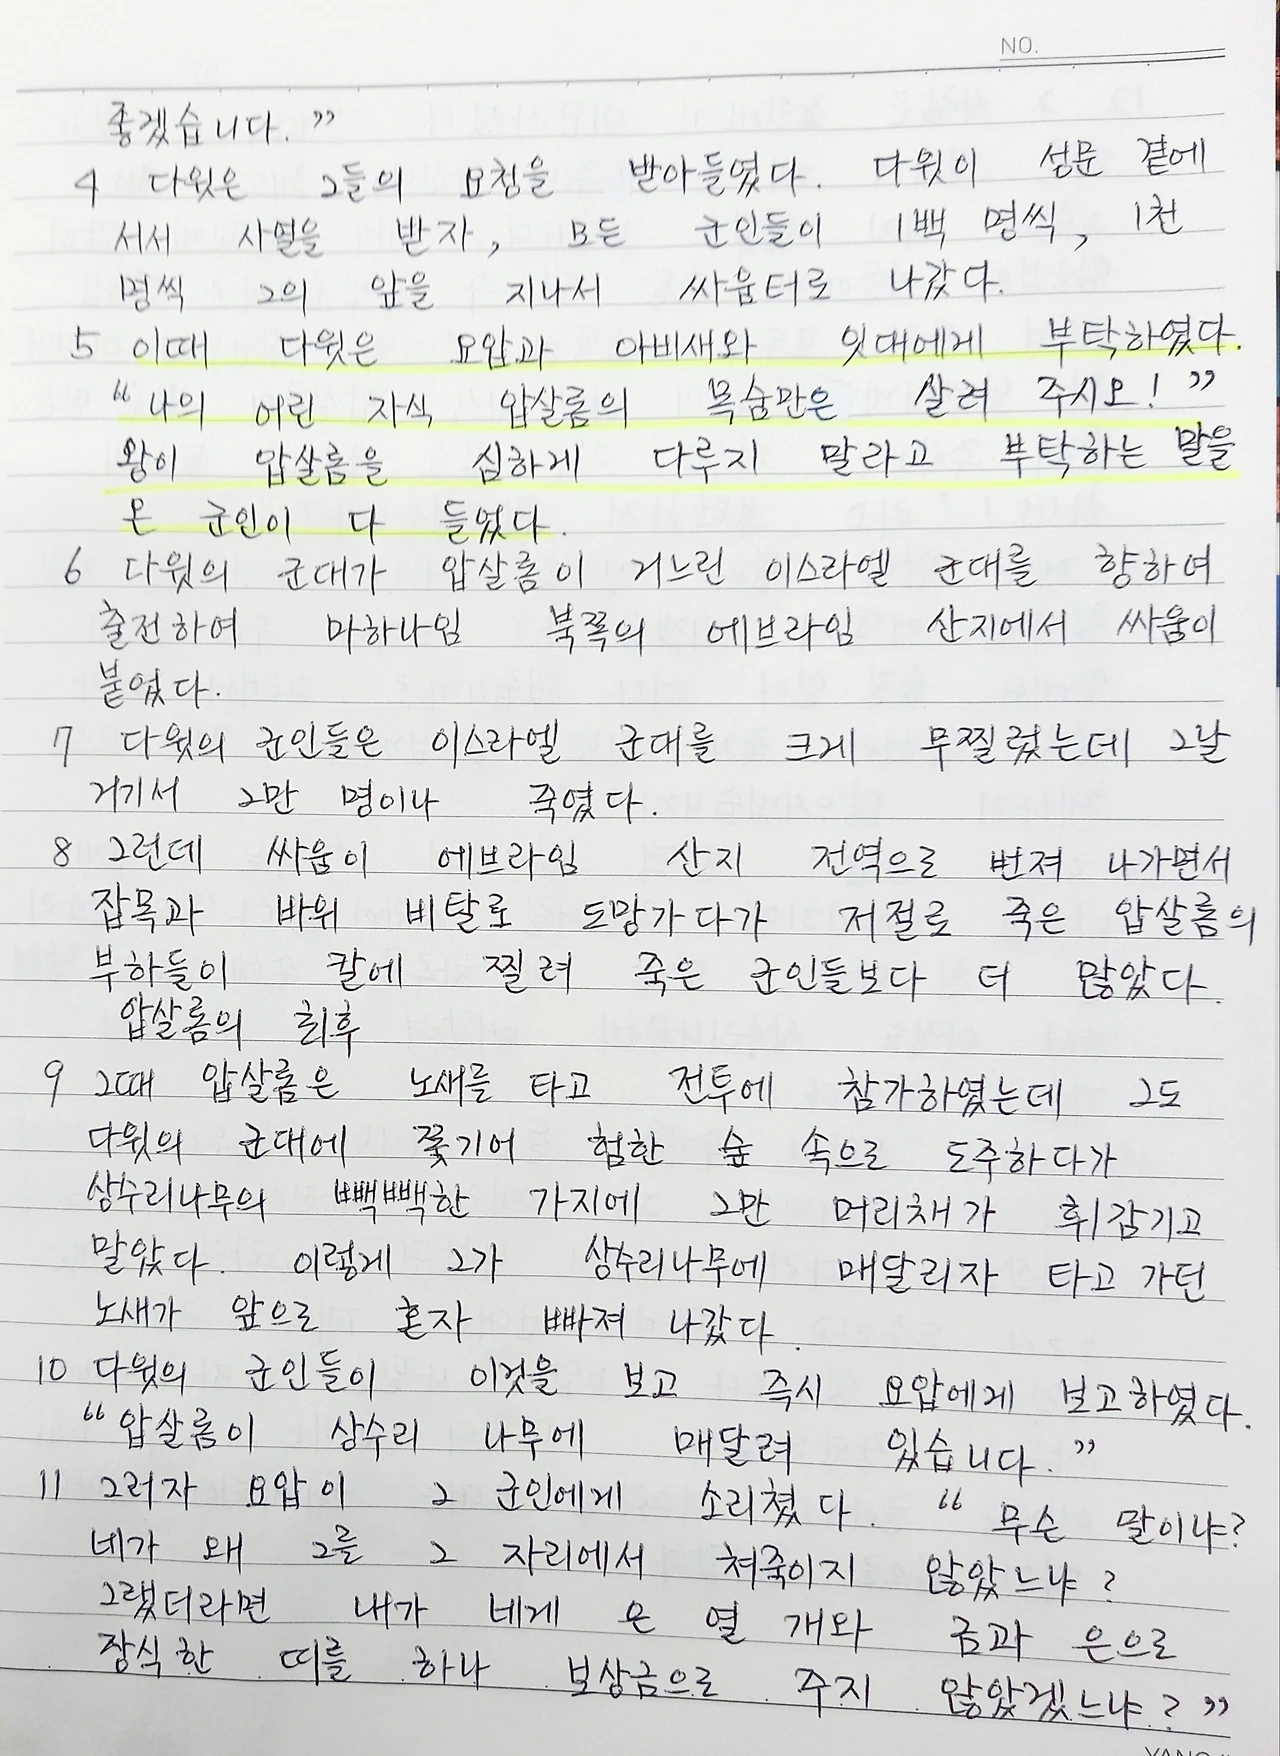 NO.
좋겠습니다.”
4 다윗은 그들의 요청을 받아들였다. 다윗이 성문 곁에
서서 사열을 받자, 모든 군인들이 1백 명씩, 1천
명씩 그의 앞을 지나서 싸움터로 나갔다.
5 이때 다윗은 요압과 아비새와 잇대에게 부탁하였다.
“나의 어린 자식 압살롬의 목숨만은 살려 주시오!”
왕이 압살롬을 심하게 다루지 말라고 부탁하는 말을
온 군인이 다 들었다.
6 다윗의 군대가 압살롬이 거느린 이스라엘 군대를 향하여
출전하여 마하나임 북쪽의 에브라임 산지에서 싸움이
붙었다.
7 다윗의 군인들은 이스라엘 군대를 크게 무찔렀는데 그날
거기서 2만 명이나 죽였다.
8 그런데 싸움이 에브라임 산지 전역으로 번져 나가면서
잡목과 바위 비탈로 도망가다가 저절로 죽은 압살롬의
부하들이 칼에 찔려 죽은 군인들보다 더 많았다.
압살롬의 최후
9 그때 압살롬은 노새를 타고 전투에 참가하였는데 그도
다윗의 군대에 쫓기어 험한 숲 속으로 도주하다가
상수리나무의 빽빽한 가지에 그만 머리채가 휘감기고
말았다. 이렇게 그가 상수리나무에 매달리자 타고 가던
노새가 앞으로 혼자 빠져 나갔다.
10 다윗의 군인들이 이것을 보고 즉시 요압에게 보고하였다.
“압살롬이 상수리 나무에 매달려 있습니다.”
11 그러자 요압이 그 군인에게 소리쳤다. “무슨 말이냐?
네가 왜 그를 그 자리에서 쳐죽이지 않았느냐?
그랬더라면 내가 네게 은 열 개와 금과 은으로
장식한 띠를 하나 보상금으로 주지 않았겠느냐?”